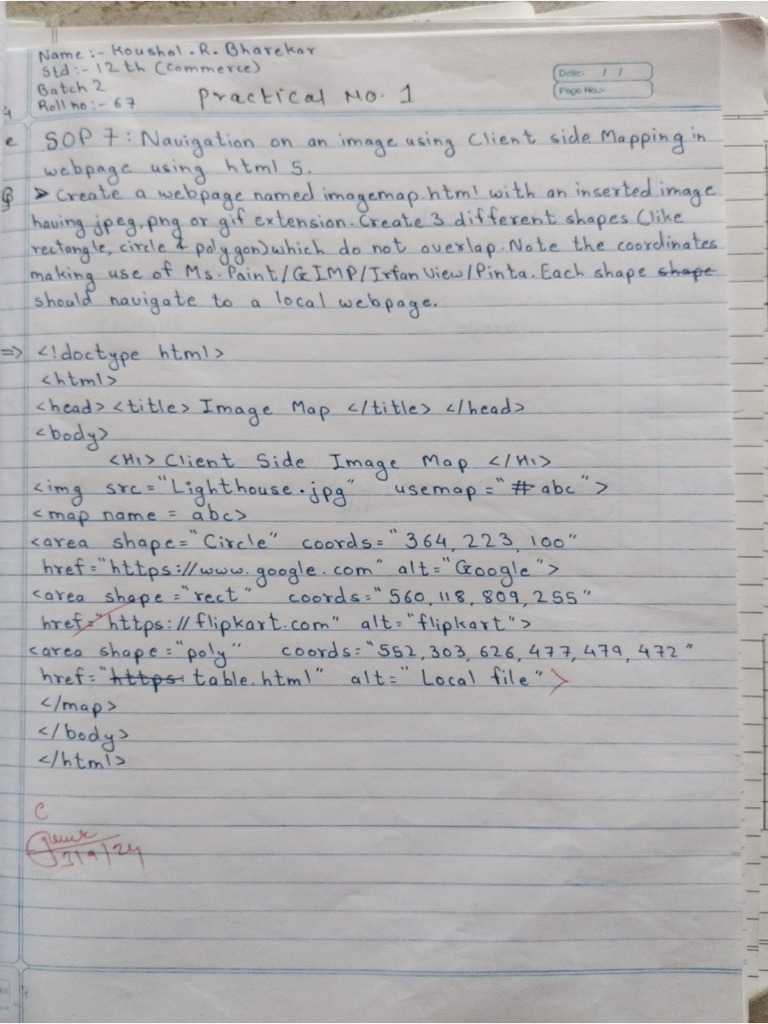 Name :- Koushal . R. Bharekar
Std :- 12th (Commerce)
Batch 2
Roll no :- 67
Date:- / /
Page No.:-
Practical No. 1
SOP 7 : Navigation on an image using Client side Mapping in
webpage using html 5.
➤ Create a webpage named imagemap.html with an inserted image
having jpeg, png or gif extension. Create 3 different shapes (like
rectangle, circle & polygon) which do not overlap. Note the coordinates
making use of Ms. Paint/GIMP/Irfan View/Pinta. Each shape shape
should navigate to a local webpage.
=> <!doctype html>
<html>
<head> <title> Image Map </title> </head>
<body>
<H1> Client Side Image Map </H1>
<img src="Lighthouse.jpg" usemap="#abc">
<map name = abc>
<area shape="Circle" coords="364, 223, 100"
href="https://www.google.com" alt="Google">
<area shape="rect" coords="560, 118, 809, 255"
href="https://flipkart.com" alt="flipkart">
<area shape="poly" coords="552, 303, 626, 477, 479, 472"
href="https table.html" alt="Local file">
</map>
</body>
</html>
C
3/9/24